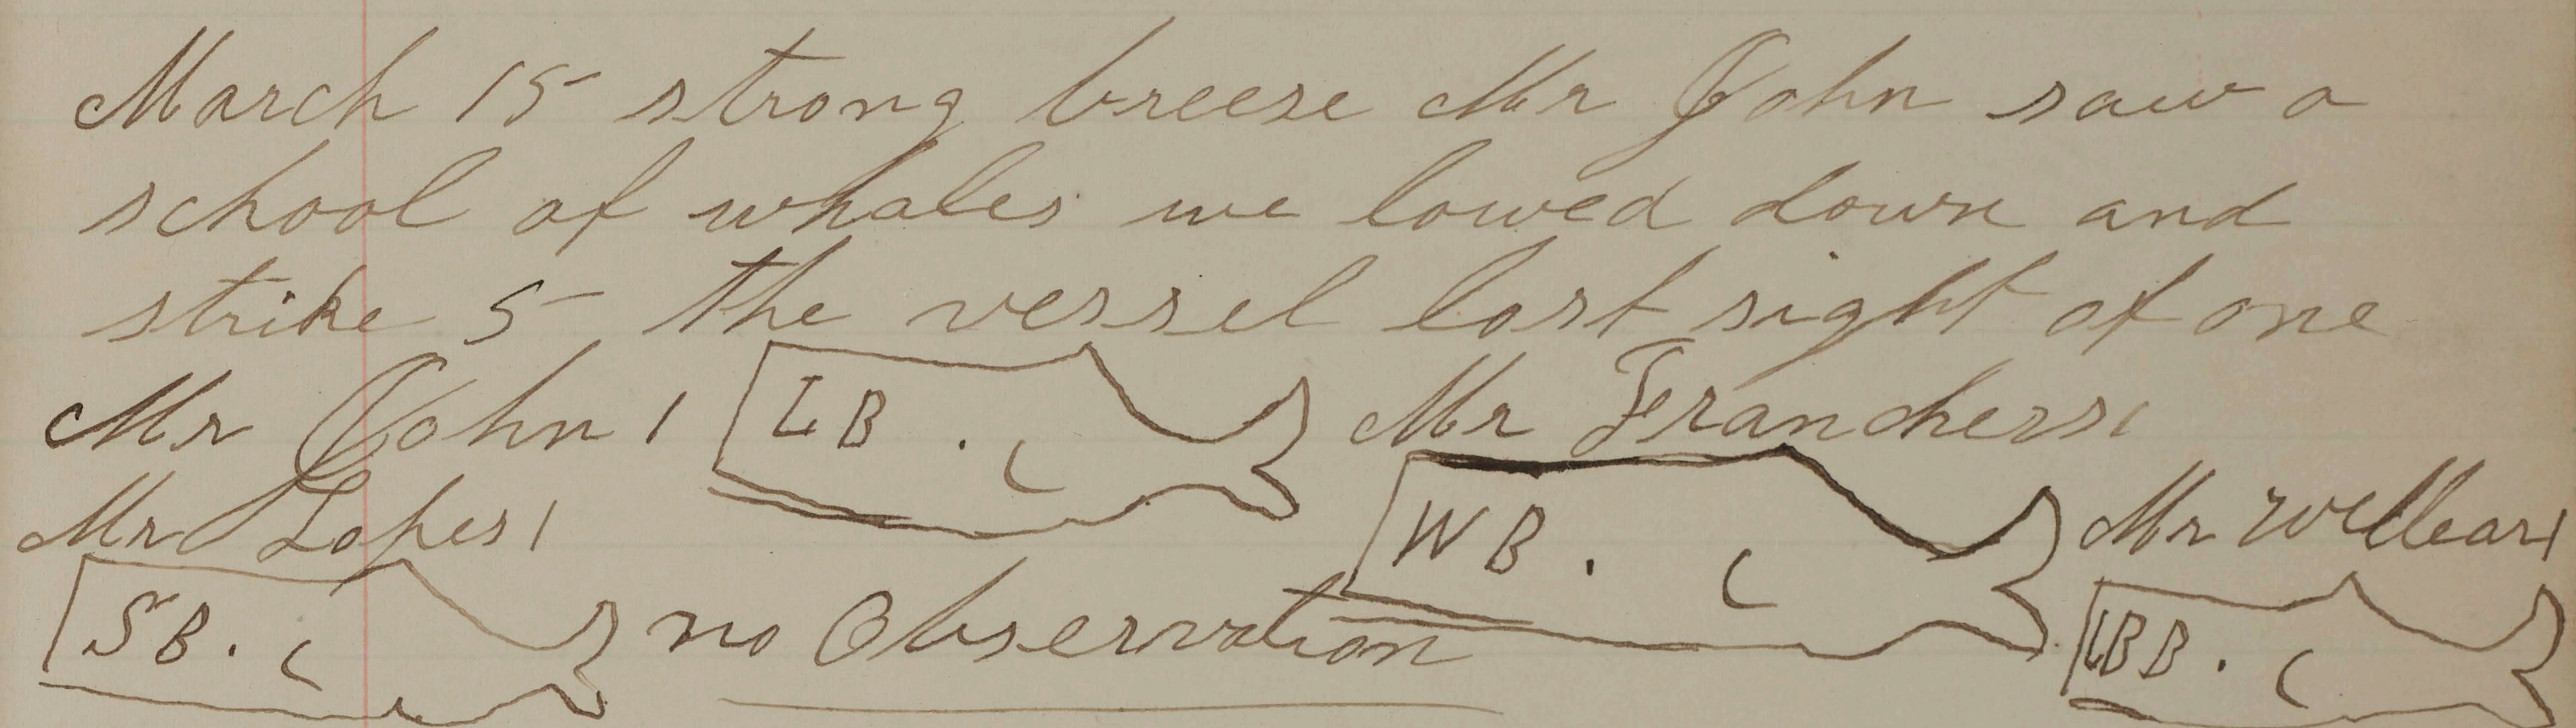 March 15 strong breese Mr John saw a
school of whales we lowed down and
strike 5 the vessel lost sight of one
Mr John 1 LB. Mr Francherss1
Mr Lopes1 WB. Mr Wellears1
SB. no Observation LBB.